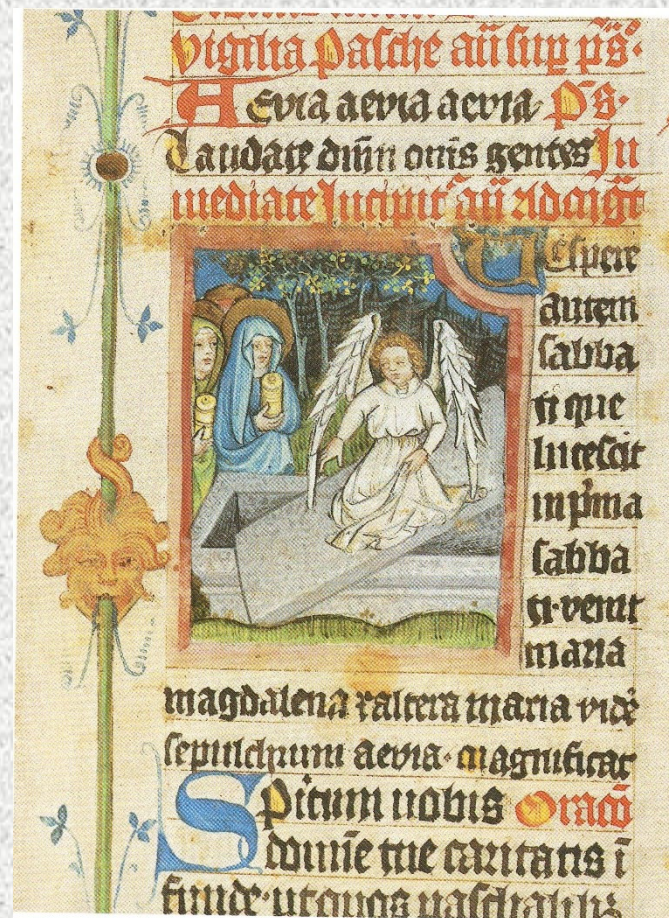 vigilia pasche añ sup ps.
Aevia aevia aevia Ps.
Laudate dñm oms gentes In
mediate Incipit añ ad mgt
Vespere
autem
sabba
ti que
lucescit
in pma
sabba
ti. venit
maria
magdalena ⁊ altera maria vide
sepulchrum aevia. magnificat
Spiritum nobis Oracō
domine tue caritatis i
funde. ut quos paschalib;